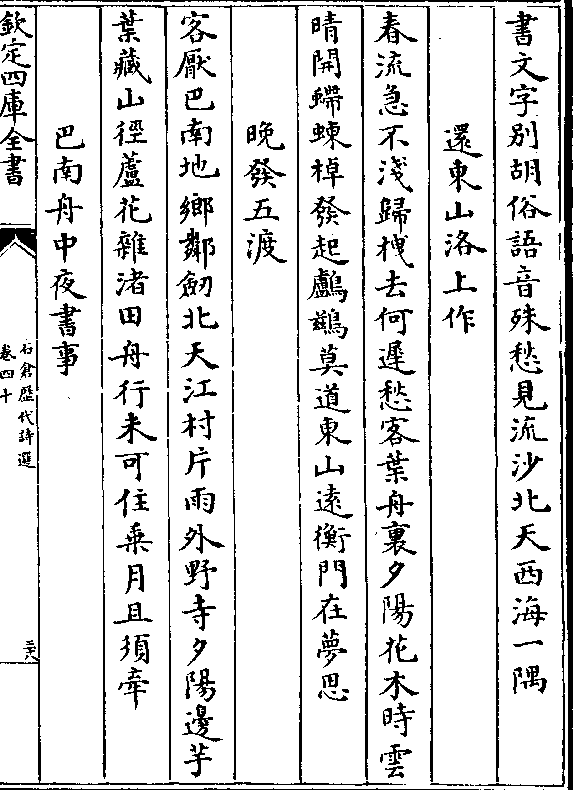 書文字別胡俗語音殊愁見流沙北天西海一隅
還東山洛上作
春流急不淺歸栧去何遲愁客葉舟裏夕陽花木時雲
晴開螮蝀棹發起鸕鷀莫道東山遠衡門在夢思
晩發五渡
客厭巴南地鄉鄰劒北天江村片雨外野寺夕陽邊芋
葉藏山徑蘆花雜渚田舟行未可住乗月且須牽
巴南舟中夜書事
欽定四庫全書
石倉歴代詩選
卷四十
二六